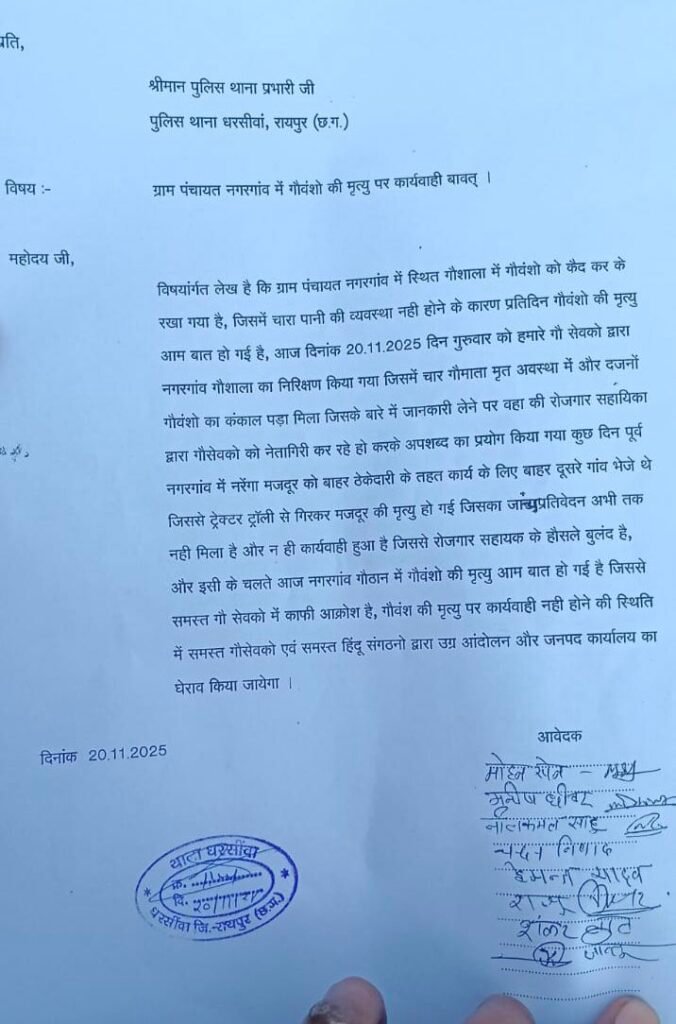 प्रति,
श्रीमान पुलिस थाना प्रभारी जी
पुलिस थाना धरसीवां, रायपुर (छ.ग.)
विषय :- ग्राम पंचायत नगरगांव में गौवंशो की मृत्यु पर कार्यवाही बावत् ।
महोदय जी,
विषयांर्गत लेख है कि ग्राम पंचायत नगरगांव में स्थित गौशाला में गौवंशो को कैद कर के
रखा गया है, जिसमें चारा पानी की व्यवस्था नही होने के कारण प्रतिदिन गौवंशो की मृत्यु
आम बात हो गई है, आज दिनांक 20.11.2025 दिन गुरुवार को हमारे गौ सेवको द्वारा
नगरगांव गौशाला का निरिक्षण किया गया जिसमें चार गौमाता मृत अवस्था में और दजनों
गौवंशो का कंकाल पड़ा मिला जिसके बारे में जानकारी लेने पर वहा की रोजगार सहायिका
द्वारा गौसेवको को नेतागिरी कर रहे हो करके अपशब्द का प्रयोग किया गया कुछ दिन पूर्व
नगरगांव में नरेंगा मजदूर को बाहर ठेकेदारी के तहत कार्य के लिए बाहर दूसरे गांव भेजे थे
जिससे ट्रेक्टर ट्रॉली से गिरकर मजदूर की मृत्यु हो गई जिसका जांच प्रतिवेदन अभी तक
नही मिला है और न ही कार्यवाही हुआ है जिससे रोजगार सहायक के हौसले बुलंद है,
और इसी के चलते आज नगरगांव गौठान में गौवंशो की मृत्यु आम बात हो गई है जिससे
समस्त गौ सेवको में काफी आक्रोश है, गौवंश की मृत्यु पर कार्यवाही नही होने की स्थिति
में समस्त गौसेवको एवं समस्त हिंदू संगठनो द्वारा उग्र आंदोलन और जनपद कार्यालय का
घेराव किया जायेगा ।
दिनांक 20.11.2025
आवेदक
मोहन सेन
मनीष धीवर
नीलकमल साहू
निषाद
हेमन्त यादव
राजू
शंकर
थाना धरसींवा
क्र.
दि. 20/11/25
धरसींवा जि.-रायपुर (छ.ग.)